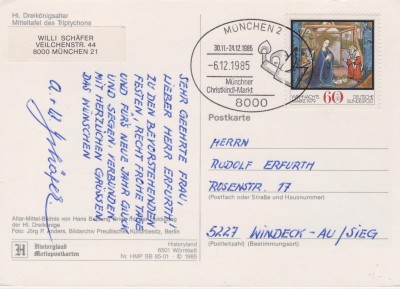 Hl. Dreikönigsaltar
Mitteltafel des Triptychons
WILLI SCHÄFER
VEILCHENSTR. 44
8000 MÜNCHEN 21
SEHR GEEHRTE FRAU,
LIEBER HERR ERFURTH!
ZU DEN BEVORSTEHENDEN
FESTEN, RECHT FROHE TAGE
UND FÜR'S NEUE JAHR GLÜCK
UND SEGEN, VERBUNDEN
MIT HERZLICHEN GRÜSSEN
DAS WÜNSCHEN
a. + W. Schäfer
Altar-Mittel-Bildnis von Hans
der Hl. Dreikönige
Foto: Jörg P. Anders, Bildarchiv Preußischer Kulturbesitz, Berlin
Historyland
Motivpostkarten
Historyland
6501 Wörrstadt
Nr. HMP BB 85-01 · © 1985
MÜNCHEN 2
30.11.-24.12.1985
-6.12.1985
Münchner
Christkindl-Markt
8000
WEIHNACHTS
MARKE 1979
60
DEUTSCHE
BUNDESPOST
Postkarte
HERRN
RUDOLF ERFURTH
ROSENSTR. 17
(Postfach oder Straße und Hausnummer)
5227 WINDECK-AU/SIEG
(Postleitzahl) (Bestimmungsort)